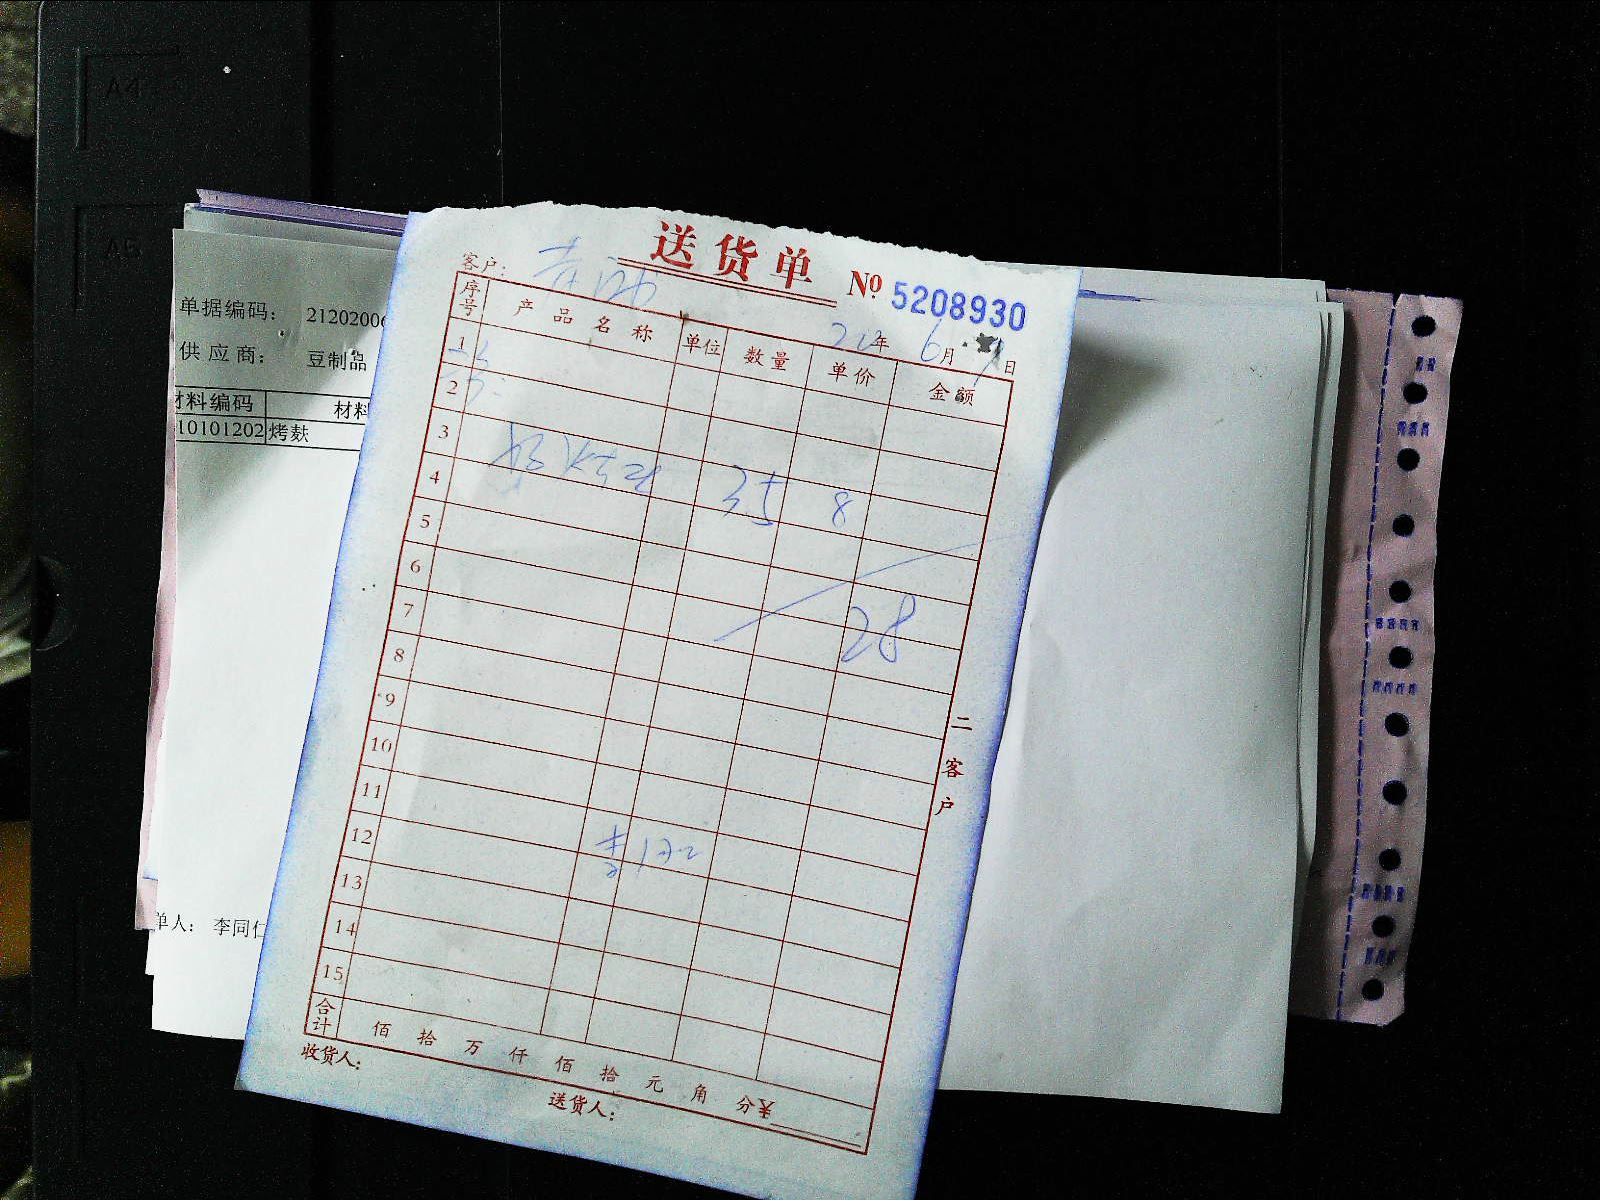 A4
A5
送货单 № 5208930
客户：
年 6 月 日
序号 产品名称 单位 数量 单价 金额
1
2
3
4 35 8
5
6
7 28
8
9
10
11
12
13
14
15
合计 佰 拾 万 仟 佰 拾 元 角 分 ¥
收货人：
送货人：
二客户
单据编码： 21202006
供应商： 豆制品
材料编码 材料
10101202 烤麸
单人： 李同仁